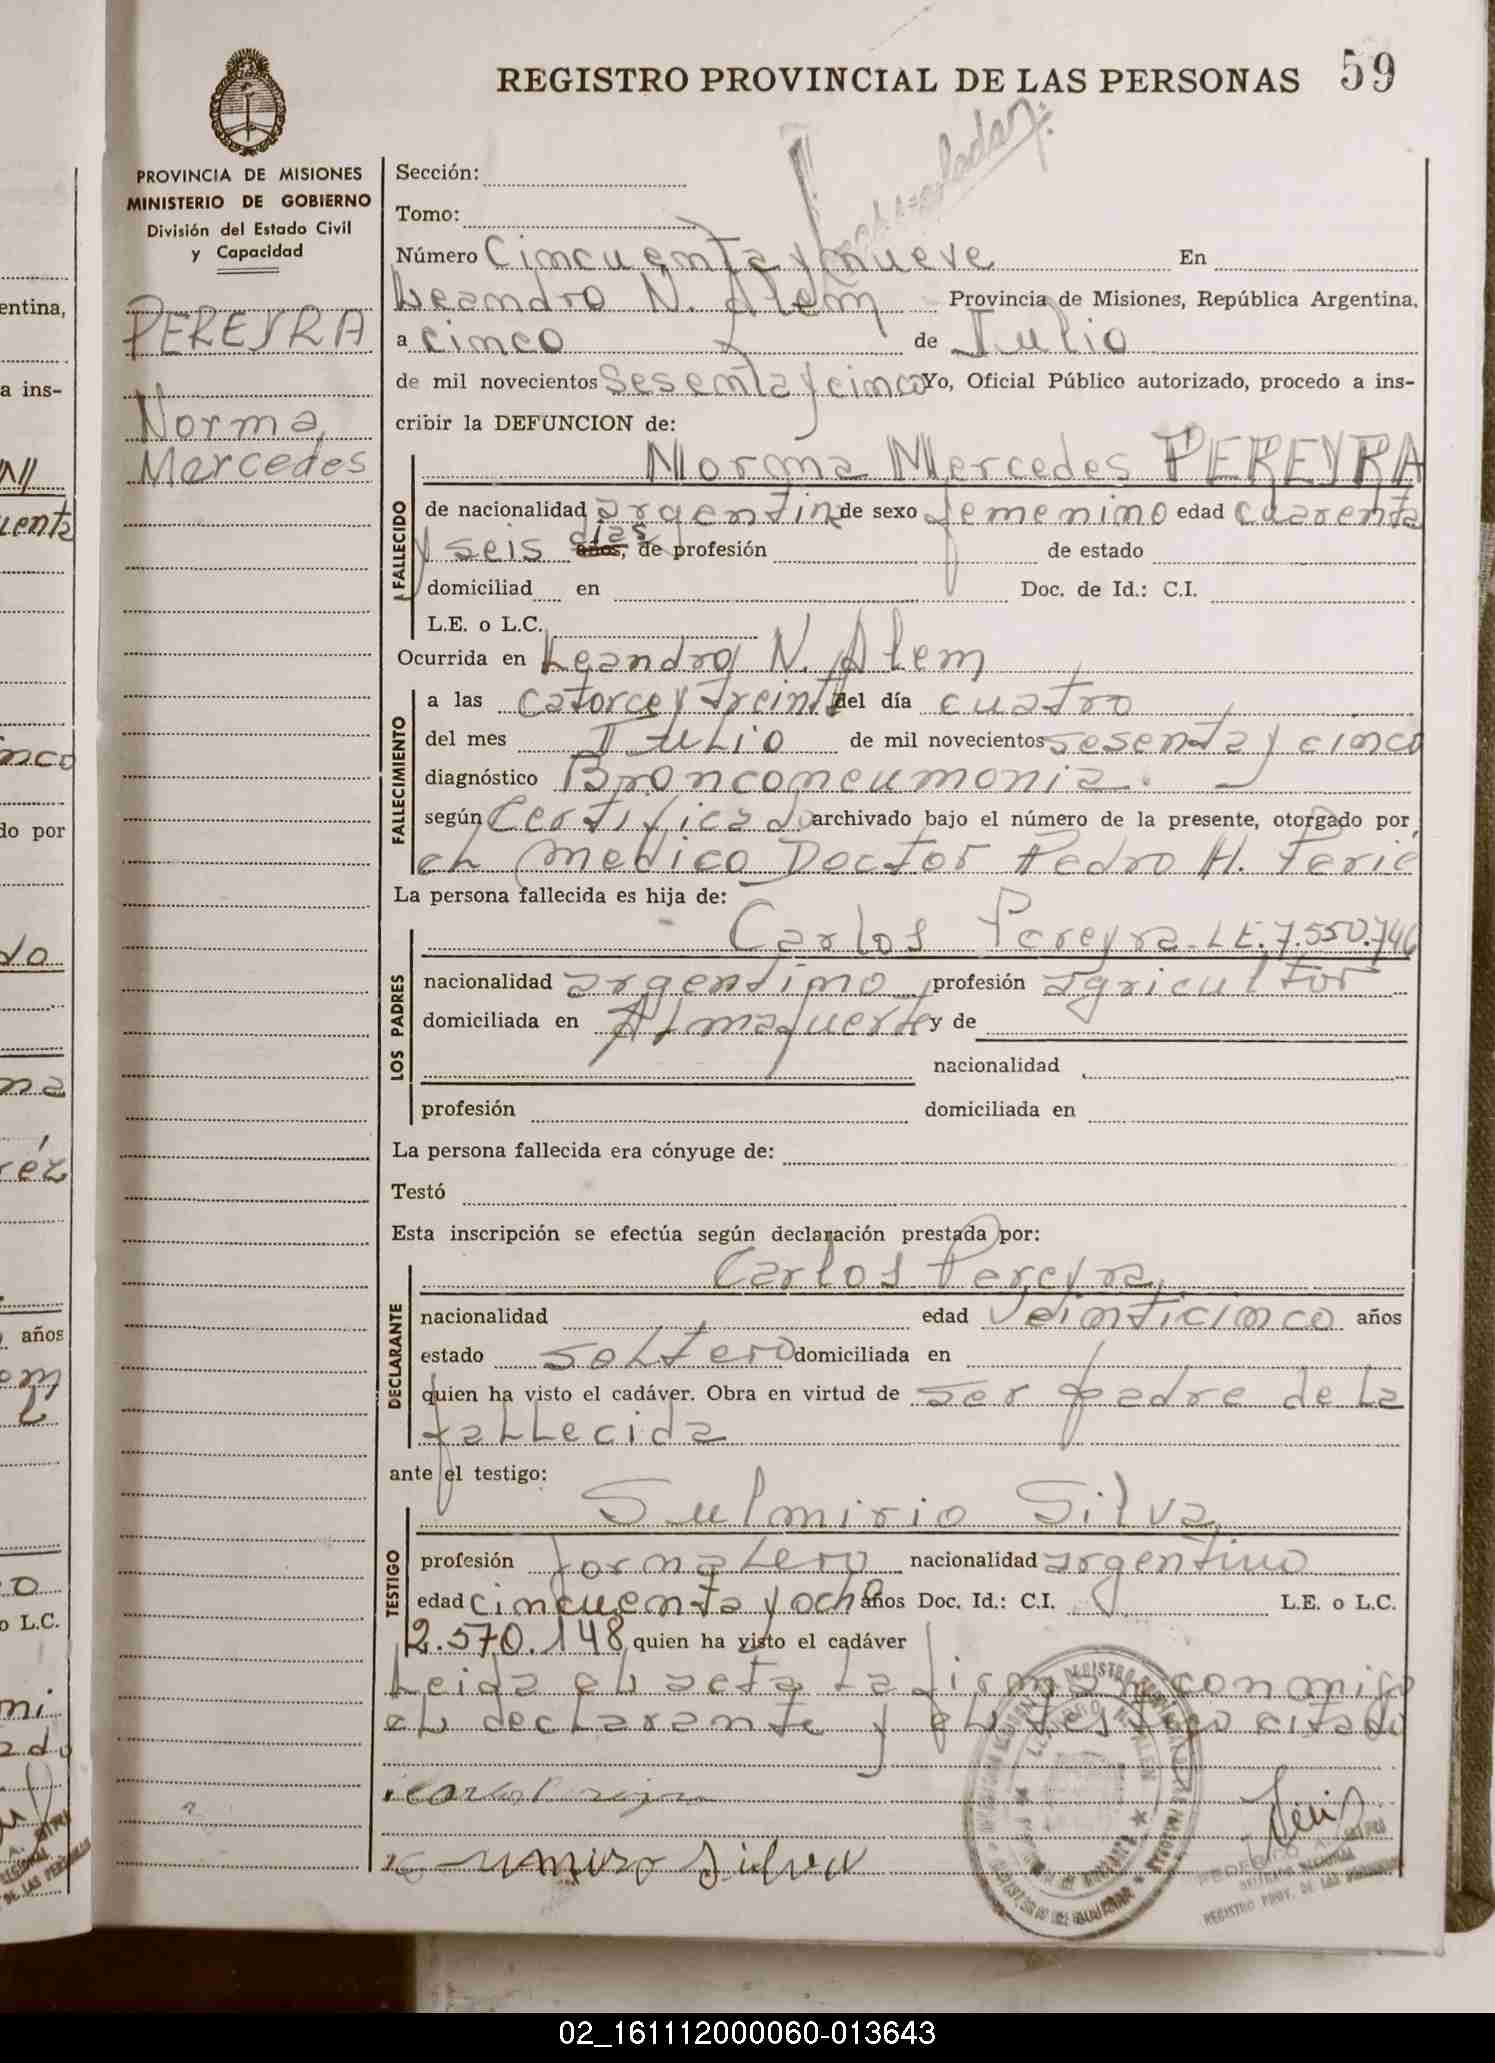 REGISTRO PROVINCIAL DE LAS PERSONAS 59
PROVINCIA DE MISIONES
MINISTERIO DE GOBIERNO
División del Estado Civil
y Capacidad
PEREYRA
Norma
Mercedes
Sección:
Tomo:
Número Cincuenta y nueve En
Leandro N. Alem Provincia de Misiones, República Argentina,
a cinco de Julio
de mil novecientos Sesenta y cinco Yo, Oficial Público autorizado, procedo a ins-
cribir la DEFUNCION de:
Norma Mercedes PEREYRA
FALLECIDO
de nacionalidad argentina de sexo femenino edad cuarenta
y seis días años, de profesión de estado
domiciliad en Doc. de Id.: C.I.
L.E. o L.C.
Ocurrida en Leandro N. Alem
FALLECIMIENTO
a las catorce y treinta del día cuatro
del mes Julio de mil novecientos sesenta y cinco
diagnóstico Bronconeumonia.
según Certificado archivado bajo el número de la presente, otorgado por
el medico Doctor Pedro H.
La persona fallecida es hija de:
LOS PADRES
Carlos Pereyra - LE. 7.550.746
nacionalidad argentino profesión agricultor
domiciliada en Almafuerte y de
nacionalidad
profesión domiciliada en
La persona fallecida era cónyuge de:
Testó
Esta inscripción se efectúa según declaración prestada por:
DECLARANTE
Carlos Pereyra
nacionalidad edad Veinticinco años
estado soltero domiciliada en
quien ha visto el cadáver. Obra en virtud de ser padre de la
fallecida
ante el testigo:
TESTIGO
Sulmirio Silva
profesión Jornalero nacionalidad argentino
edad cincuenta y ocho años Doc. Id.: C.I. L.E. o L.C.
2.570.148 quien ha visto el cadáver
Leida el acta la firman conmigo
el declarante y el testigo citado
Silva
REGISTRO PROV. DE LAS PERSONAS
entina,
a ins-
do por
años
o L.C.
02_161112000060-013643